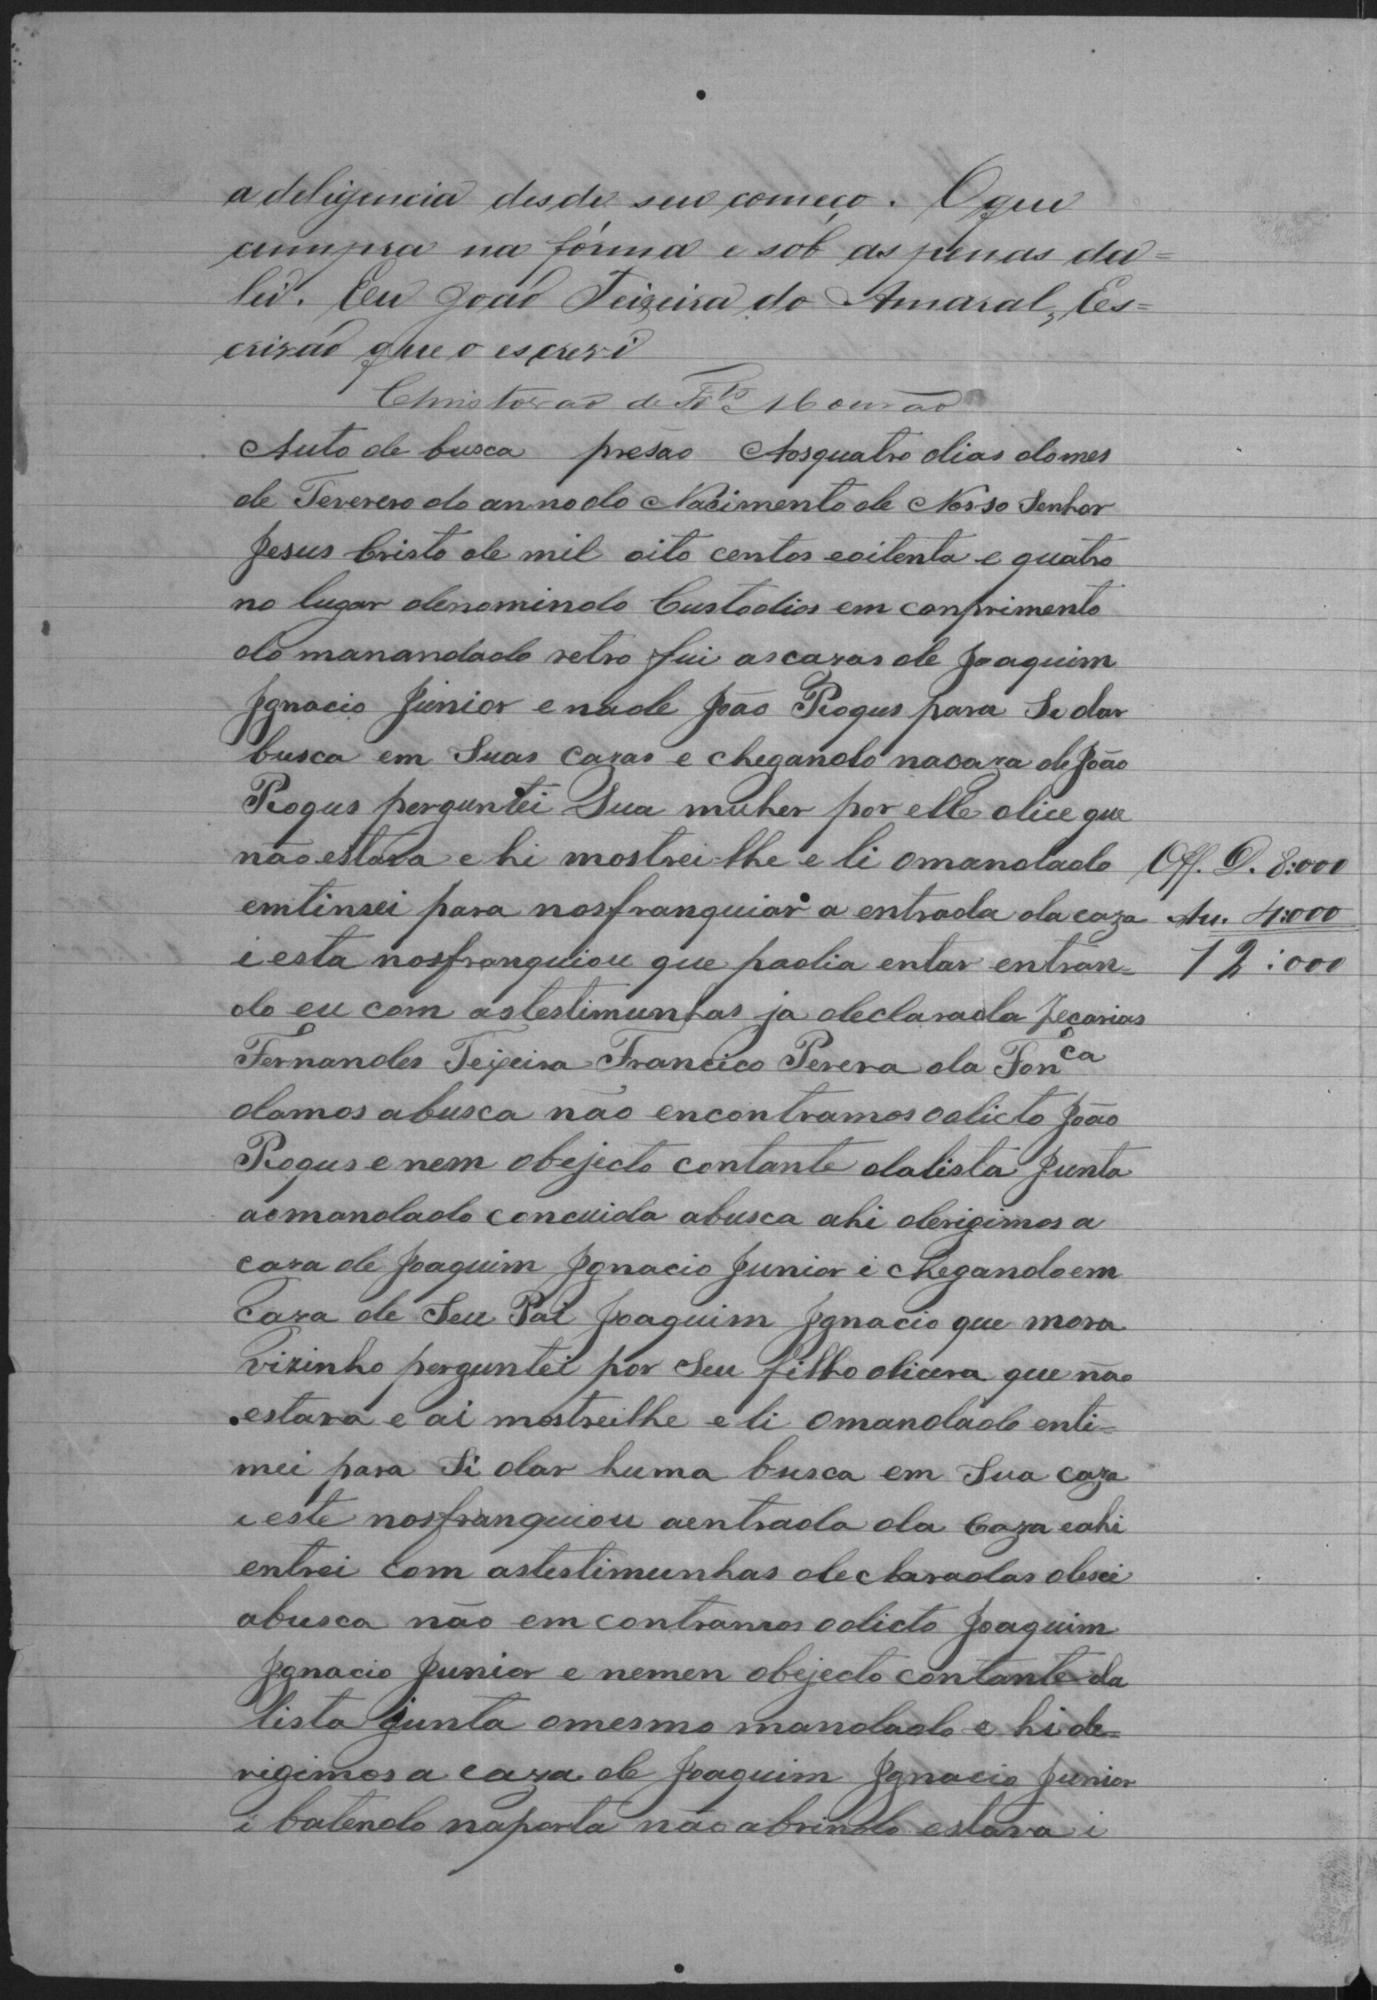 a deligencia desde seu começo. O que
cumpra na fórma e sob as penas da =
lei. Eeu João Teixeira do Amaral, Es=
crivão que o escrevi
Christovão de Mourão
Auto de busca presão Aosquatro dias domes
de Feverero do anno do Nacimento de Nosso Senhor
Jesus Cristo de mil oito centos eoitenta e quatro
no lugar denomindo Custodios em conprimento
do manandado retro fui ascazas de Joaquim
Ignacio Junior e nade João Rogus para Se dar
busca em Suas Cazas e chegando nacaza de João
Rogus perguntei Sua muher por elle dice que
não estava e hi mostrei-lhe e li omandado
emtinsei para nosfranquiar a entrada da caza
i esta nosfranquiou que padia entar entran-
do eu com astestimunhas ja declarada Zecarias
Fernandes Teixeira Francico Perera da Fonca
damos abusca não encontramos odicto João
Rogus e nem obejecto contante dalista Junta
aomandado concuida abusca ahi derigimos a
caza de Joaquim Ignacio Junior i chegandoem
Caza de Seu Pai Joaquim Ignacio que mora
Vizinho perguntei por Seu filho dicera que não
estava e ai mostreilhe e li Omandado enti-
mei para Si dar huma busca em Sua caza
i este nosfranquiou aentrada da Caza eahi
entrei Com astestimunhas declaradas desei
abusca não em contramos odicto Joaquim
Ignacio Junior e nemen obejecto contante da
lista junta omesmo mandado e hi de-
rigimos a caza de Joaquim Ignacio Junior
i batendo naporta não abrindo estava i
Off. D. 8:000
Au. 4:000
12:000